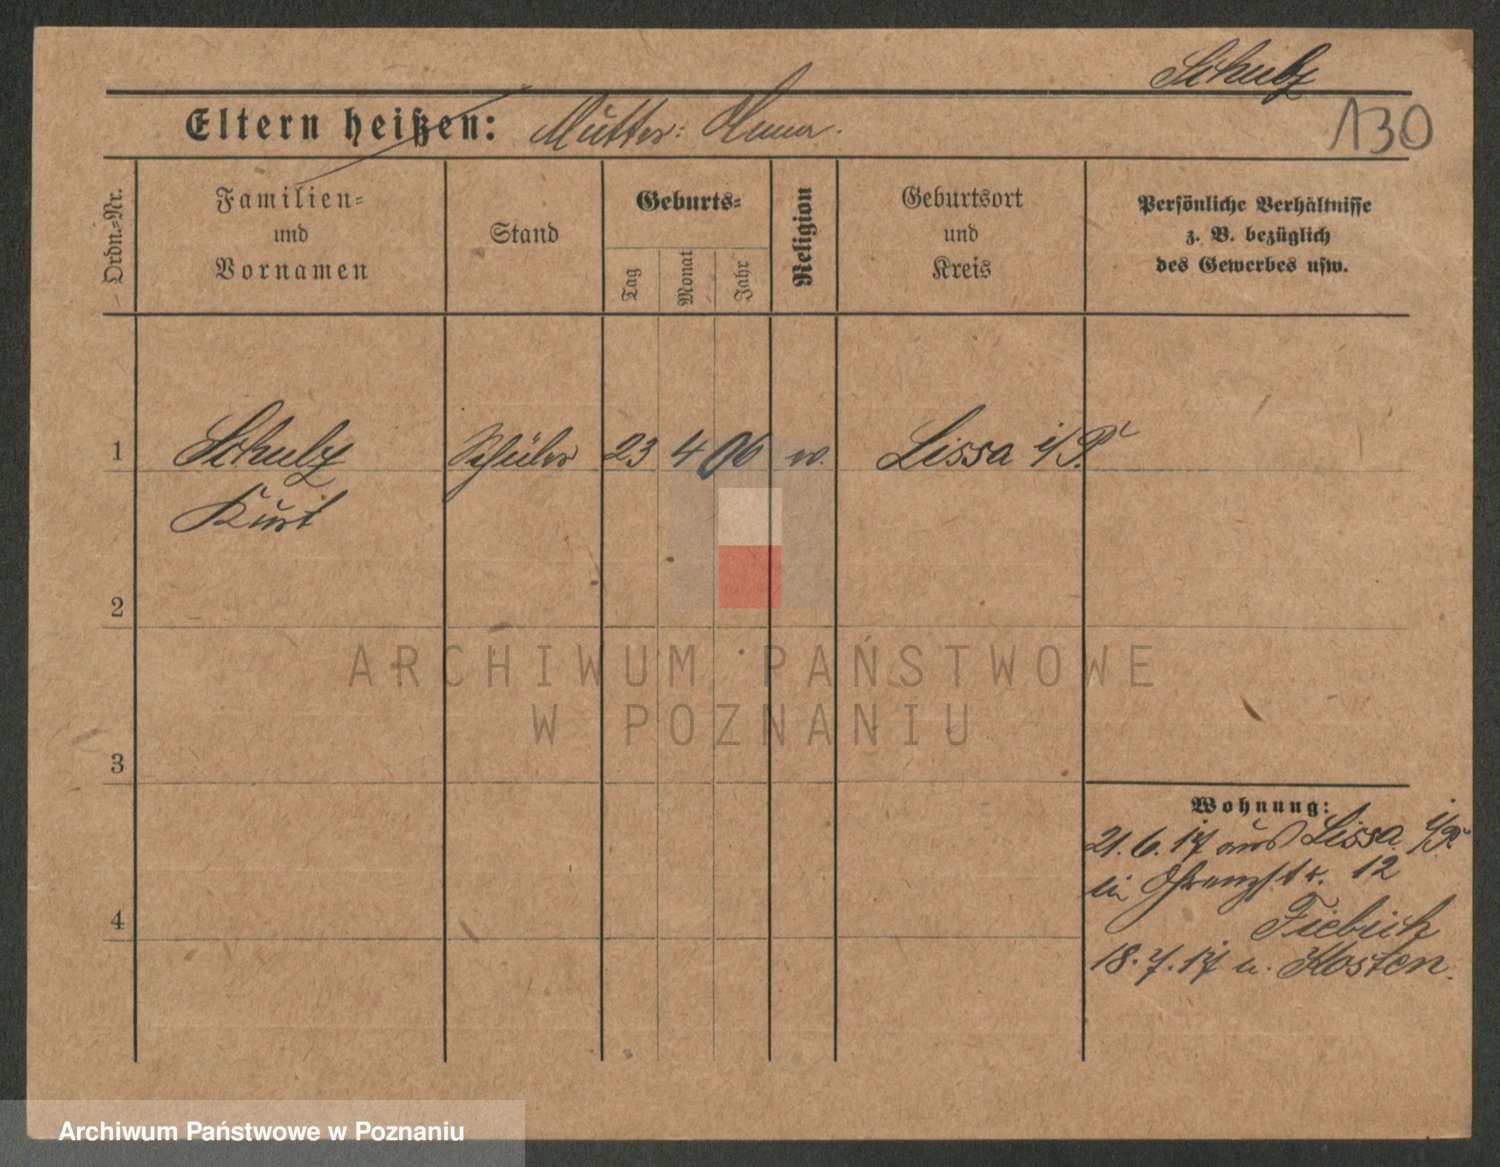 Schulz
130
Eltern heißen: Mutter: Anna.
Ordn.-Nr.
Familien-
und
Vornamen
Stand
Geburts-
Tag
Monat
Jahr
Religion
Geburtsort
und
Kreis
Persönliche Verhältnisse
z. B. bezüglich
des Gewerbes usw.
1 Schulz Schüler 23 4 06 ev. Lissa i/P.
Kurt
2
ARCHIWUM PAŃSTWOWE
W POZNANIU
3
Wohnung:
21.6.17 aus Lissa i/P.
in 12
Fiebich
18.7.17 n. Kosten.
4
Archiwum Państwowe w Poznaniu